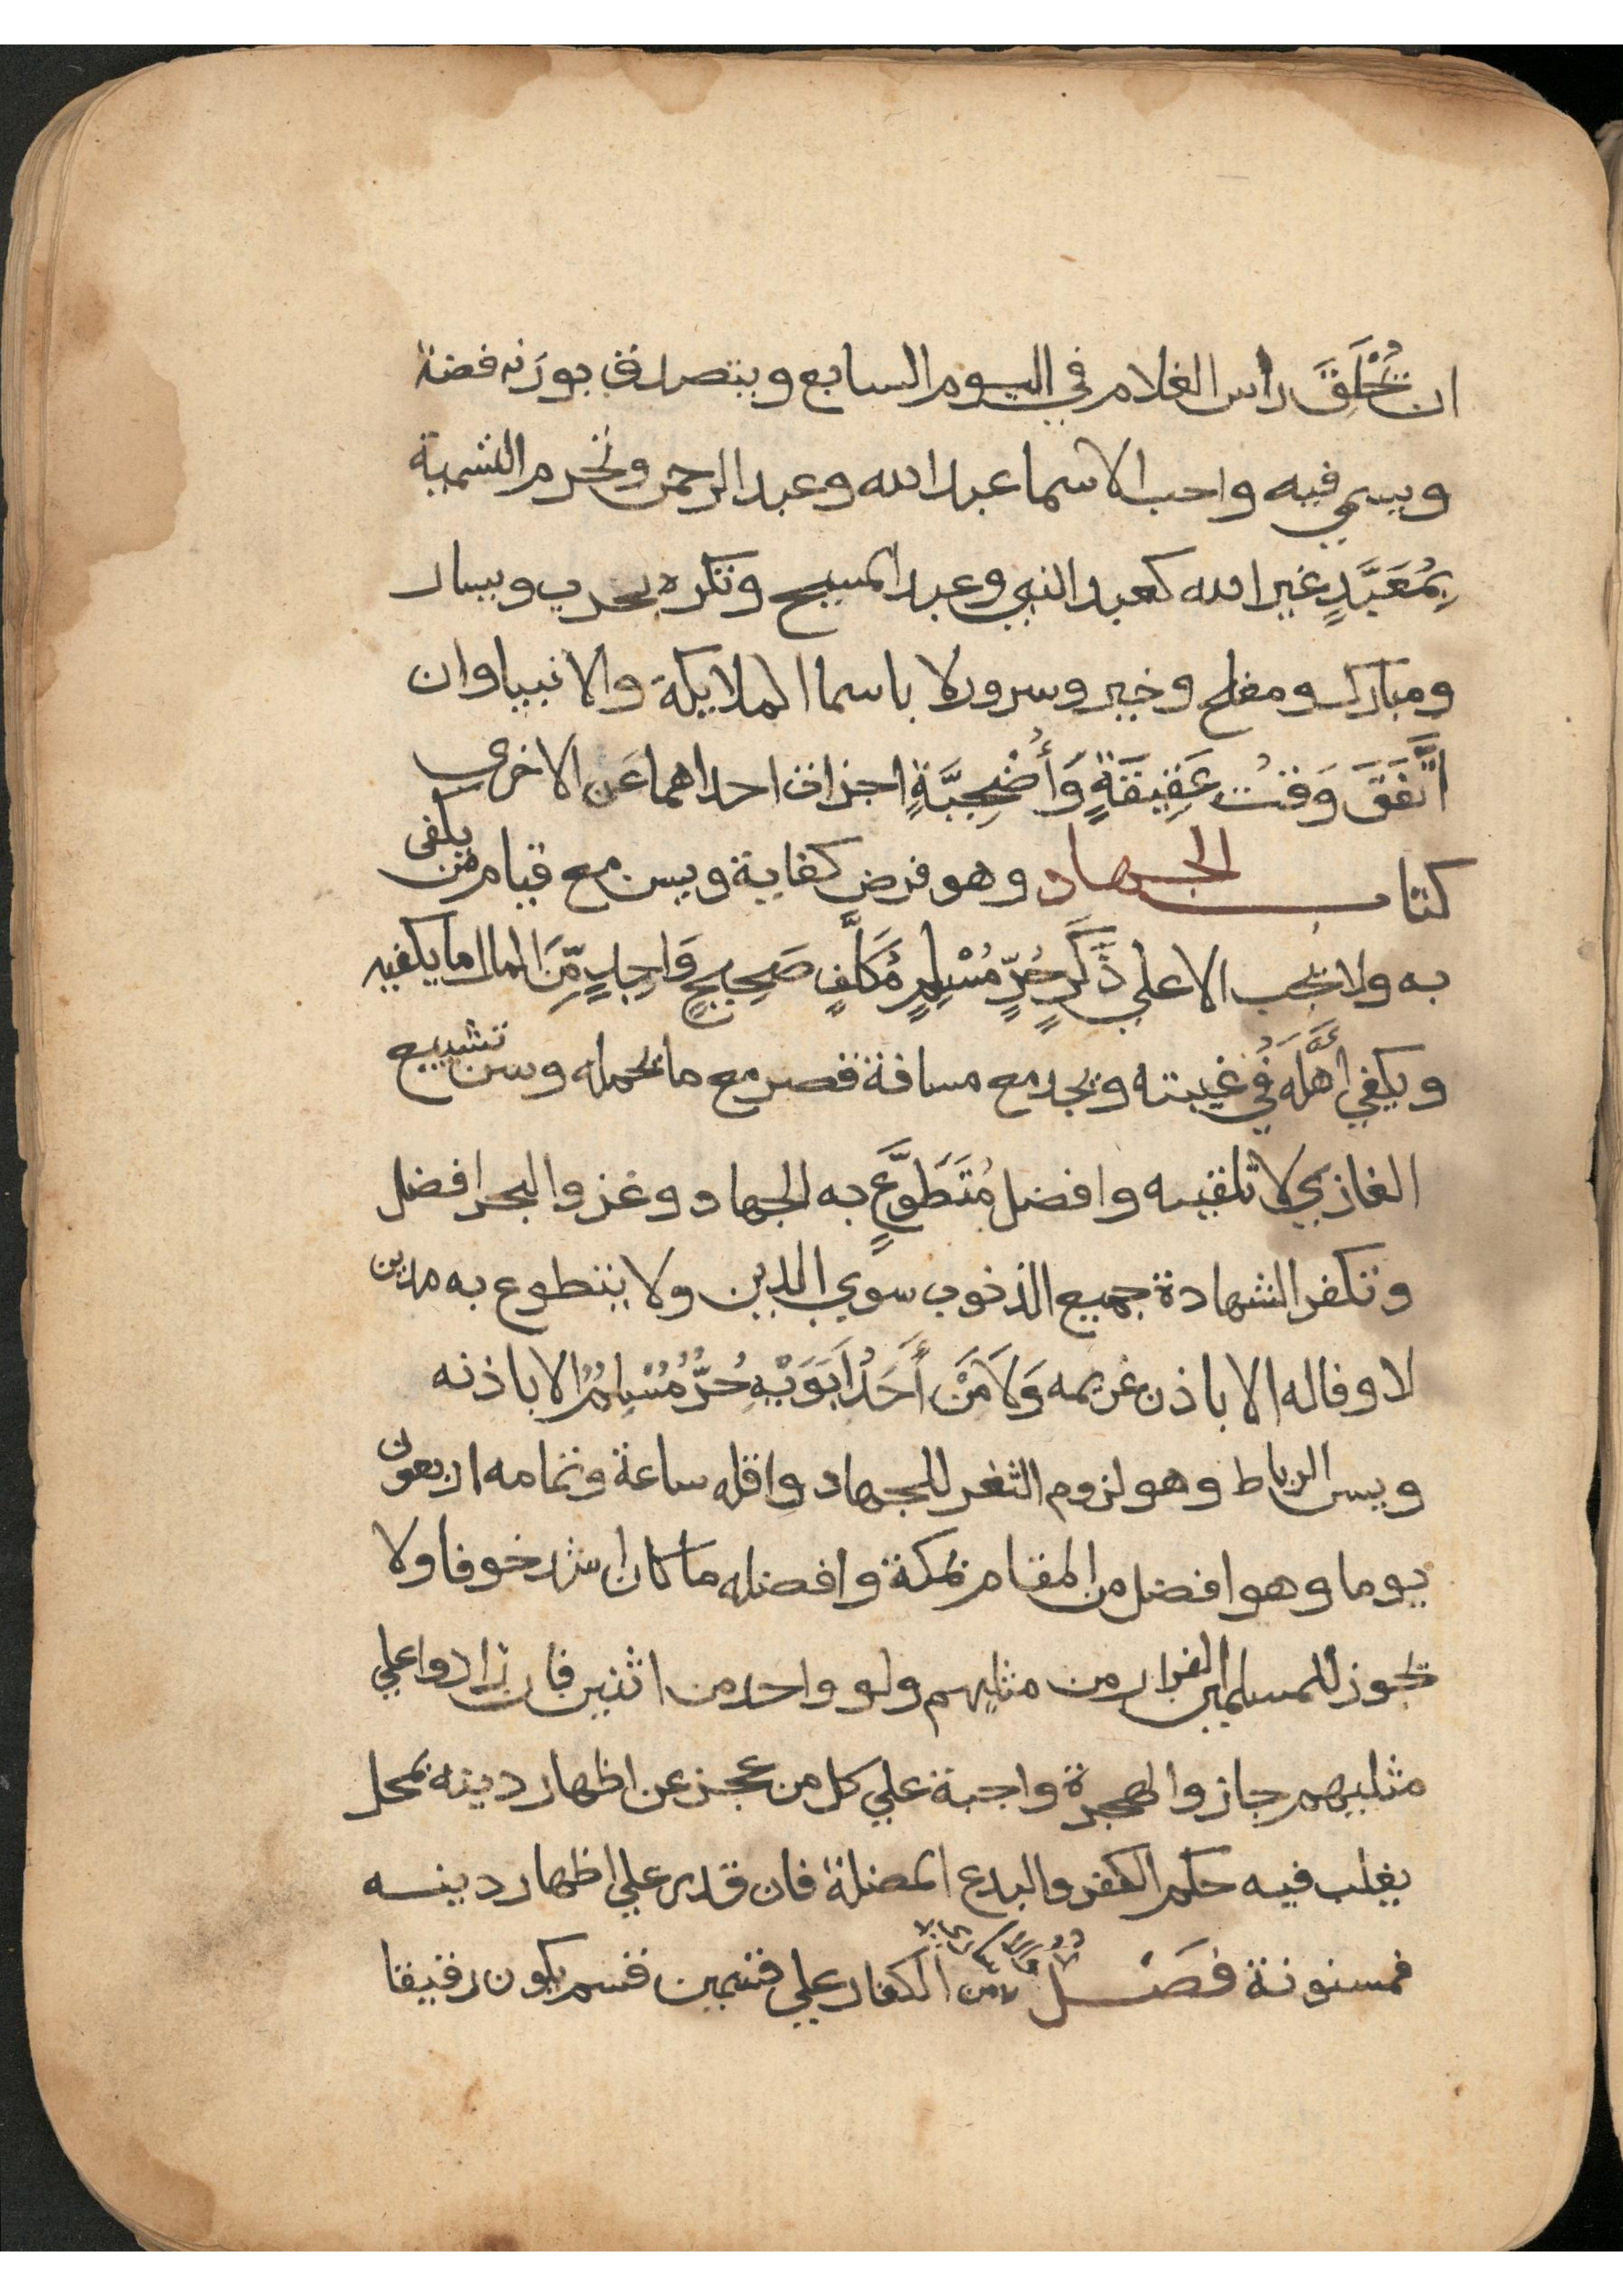 ان يُحْلَقَ راس الغلام في اليوم السابع ويتصدق بوزنه فضة
ويسمي فيه واحب الاسما عبد الله وعبد الرحمن وتحرم التسمية
بِمُعَبَّدٍ غير الله كعبد النبي وعبد المسيح وتكره بحرب ويسار
ومبارك ومفلح وخير وسرور لا باسما الملايكة والانبيا وان
اتَّفَقَ وَقتُ عَقِيقَةٍ وَأُضْحِيَّةٍ اجزات احداهما عَن الاخرى
كتاب الجهاد وهو فرض كفاية ويسن مع قيام من يكفى
به ولا يجب الا علي ذَكَرٍ حُرٍّ مُسْلِمٍ مُكَلَّفٍ صَحِيحٍ وَاجِدٍ مِّنَ المال ما يكفيه
ويكفي اهْلَه في غيبته ويجد مع مسافة قصر مع ما يحمله وسن تشييع
الغازي لا تلقيه وافضل مُتَطَوَّعٍ به الجهاد وغزو البحر افضل
وتكفر الشهادة جميع الذنوب سوي الدين ولا يتطوع به مدين
لا وفا له الا باذن غريمه وَلَا مَنْ أَحَدُ ابَوَيْهِ حُرٌّ مُسْلِمٌ الا باذنه
ويسن الرباط وهو لزوم الثغر للجهاد واقله ساعة وتمامه اربعون
يوما وهو افضل من المقام بمكة وافضله ما كان اشد خوفا ولا
يجوز للمسلمين الفرار من مثليهم ولو واحد من اثنين فان زادوا علي
مثليهم جاز والهجرة واجبة علي كل من عجز عن اظهار دينه بمحل
يغلب فيه حكم الكفر والبدع المضلة فان قدر علي اظهار دينه
فمسنونة فصَـل من الكفار علي قسمين قسم يكون رقيقا